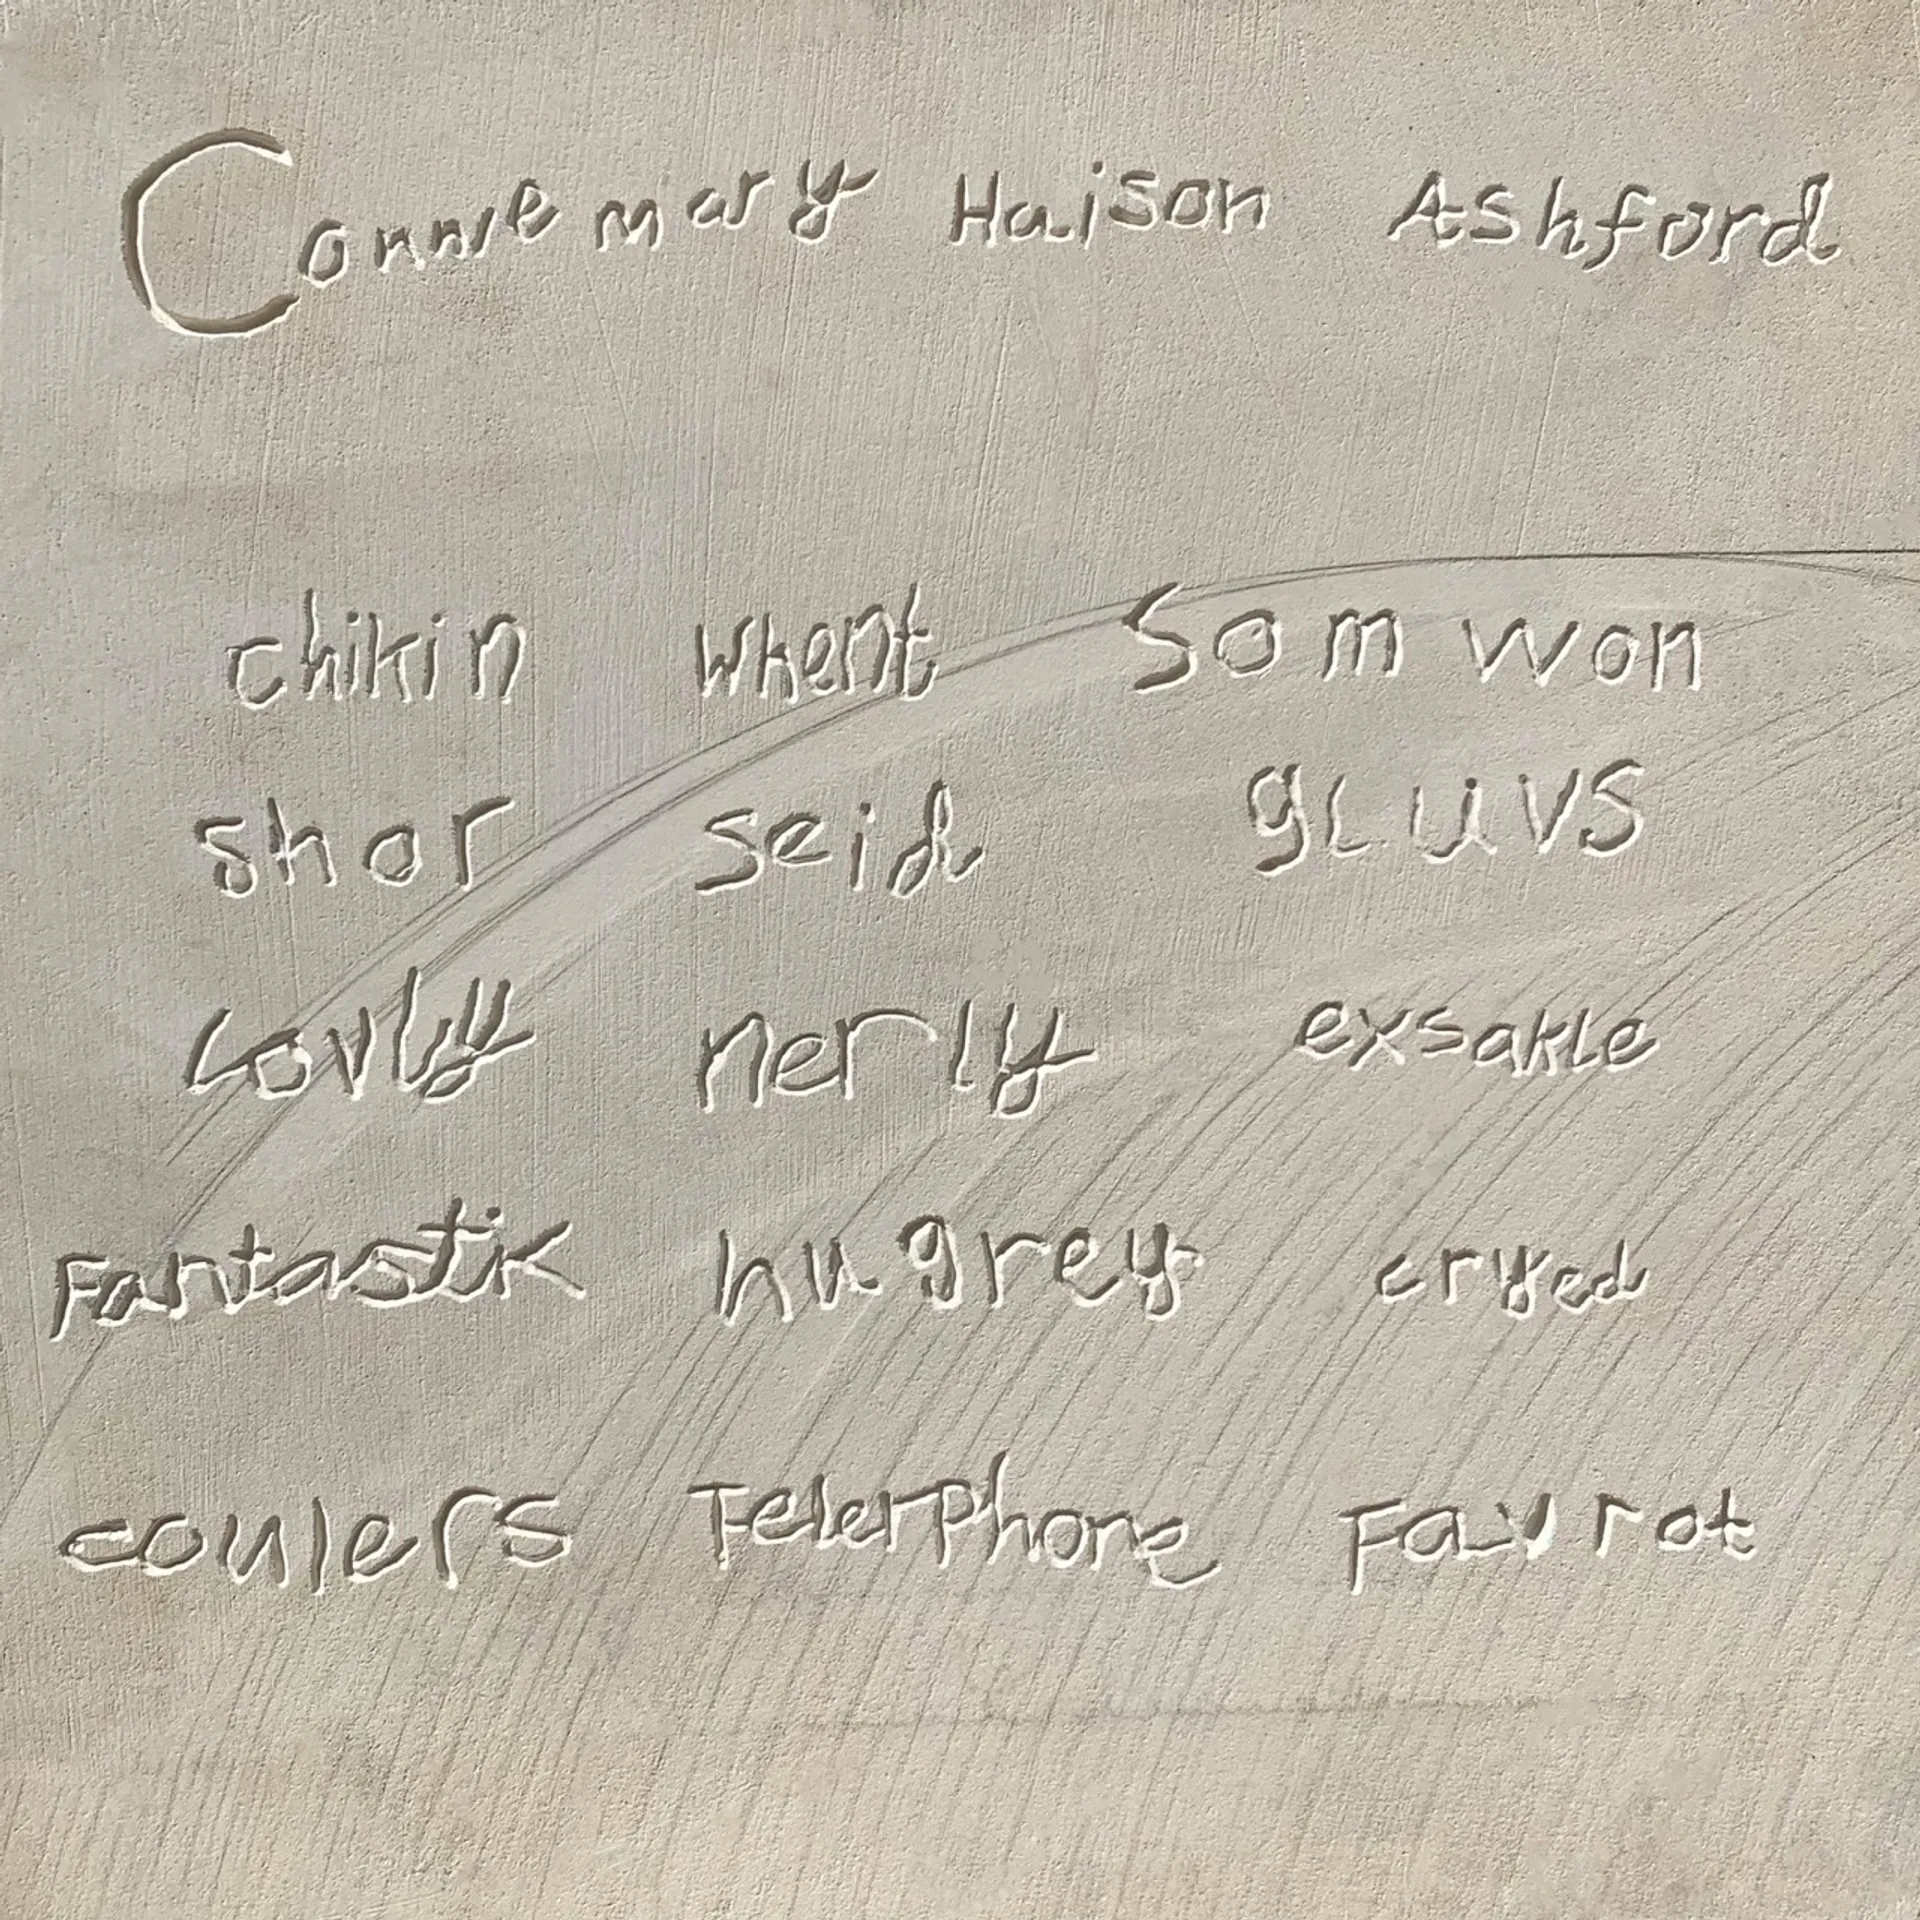 Connie mary Haison Ashford
chikin whent Som won
shor seid gluvs
Lovly nerly exsakle
Fantastik hugrey cryed
coulers TelerPhone Favrot